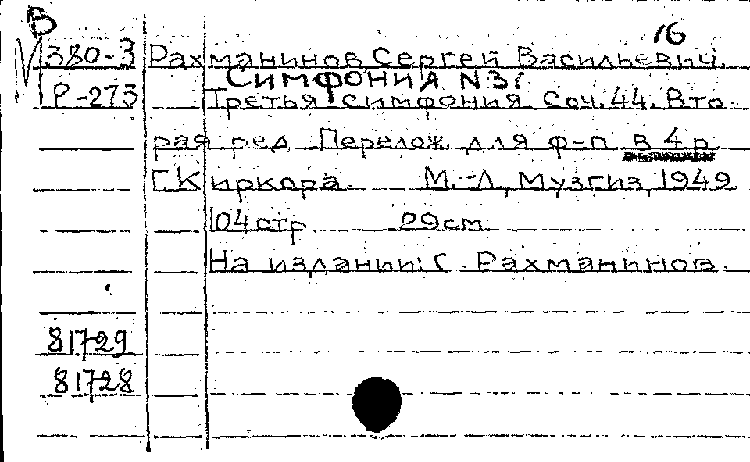 В
16
380-3 Рахманинов Сергей Васильевич.
Симфония N3.
Р-273 Третья симфония Соч. 44. Вто-
рая ред. Перелож. для ф-п. в 4 р.
Г. Киркора. М.-Л., Музгиз, 1949
104 стр. 29 см.
На издании: С. Рахманинов.
81729
81728